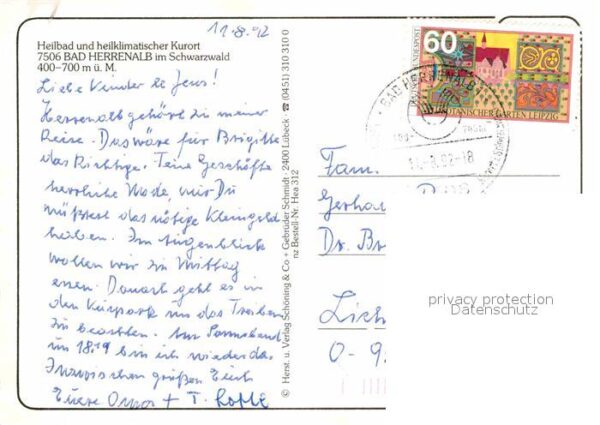 11.8.92
Heilbad und heilklimatischer Kurort
7506 BAD HERRENALB im Schwarzwald
400–700 m ü. M.
Liebe Kinder & Jens!
Herrenalb gehört zu meiner
Reise. Das wäre für Brigitte
das Richtige. Feine Geschäfte
herrliche Mode, nur Du
müßtest das nötige Kleingeld
haben. Im Augenblick
wollen wir zu Mittag
essen. Danach geht es in
den Kurpark um das Treiben
zu beachten. Am Sonnabend
um 18.19 bin ich wieder da.
Inzwischen grüßen Euch
Eure Oma + T.
© Herst. u. Verlag Schöning & Co + Gebrüder Schmidt · 2400 Lübeck · ☎ (0451) 310 310 0
nz Bestell-Nr. Hea 312
60
BUNDESPOST
BOTANISCHER GARTEN LEIPZIG
BAD HERRENALB
Fam.
Gerha
Dr. Br
Lich
O-9
privacy protection
Datenschutz